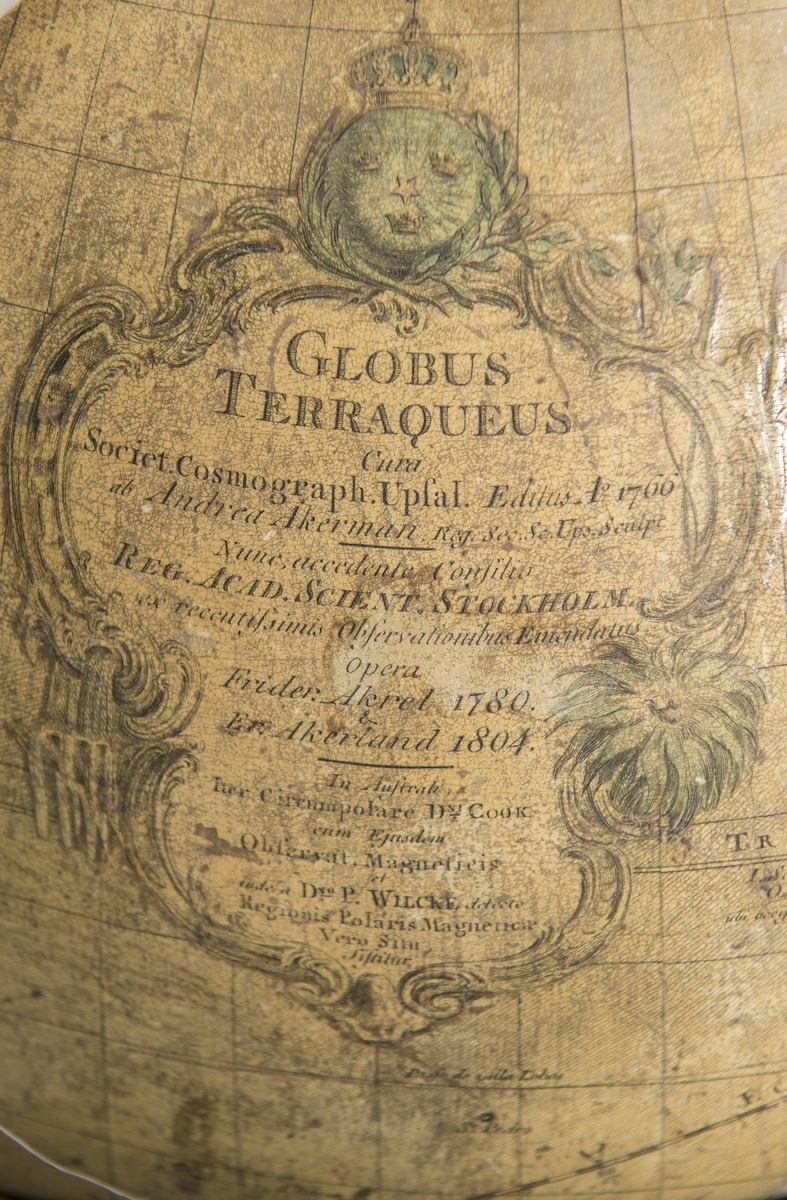 GLOBUS
TERRAQUEUS
Cura
Societ. Cosmograph. Upſal. Editus Aº 1766
ab Andrea Akerman Reg. Soc. Sc. Ups. Sculpt
Nunc, accedente Conſilio
REG. ACAD. SCIENT. STOCKHOLM.
ex recentiſsimis Obſervationibus Emendatus
Opera
Frider. Akrel 1780.
&
Er. Akerland 1804.
In Auſtrali,
Iter Circumpolare Dⁿⁱ COOK
cum Ejusdem
Obſervat. Magneticis
et
Dⁿᵒ P. WILCKE, detecto
Regionis Polaris Magneticæ
Vero Situ,
Siſtitur.
TR
de villa Lobos
St Pedro